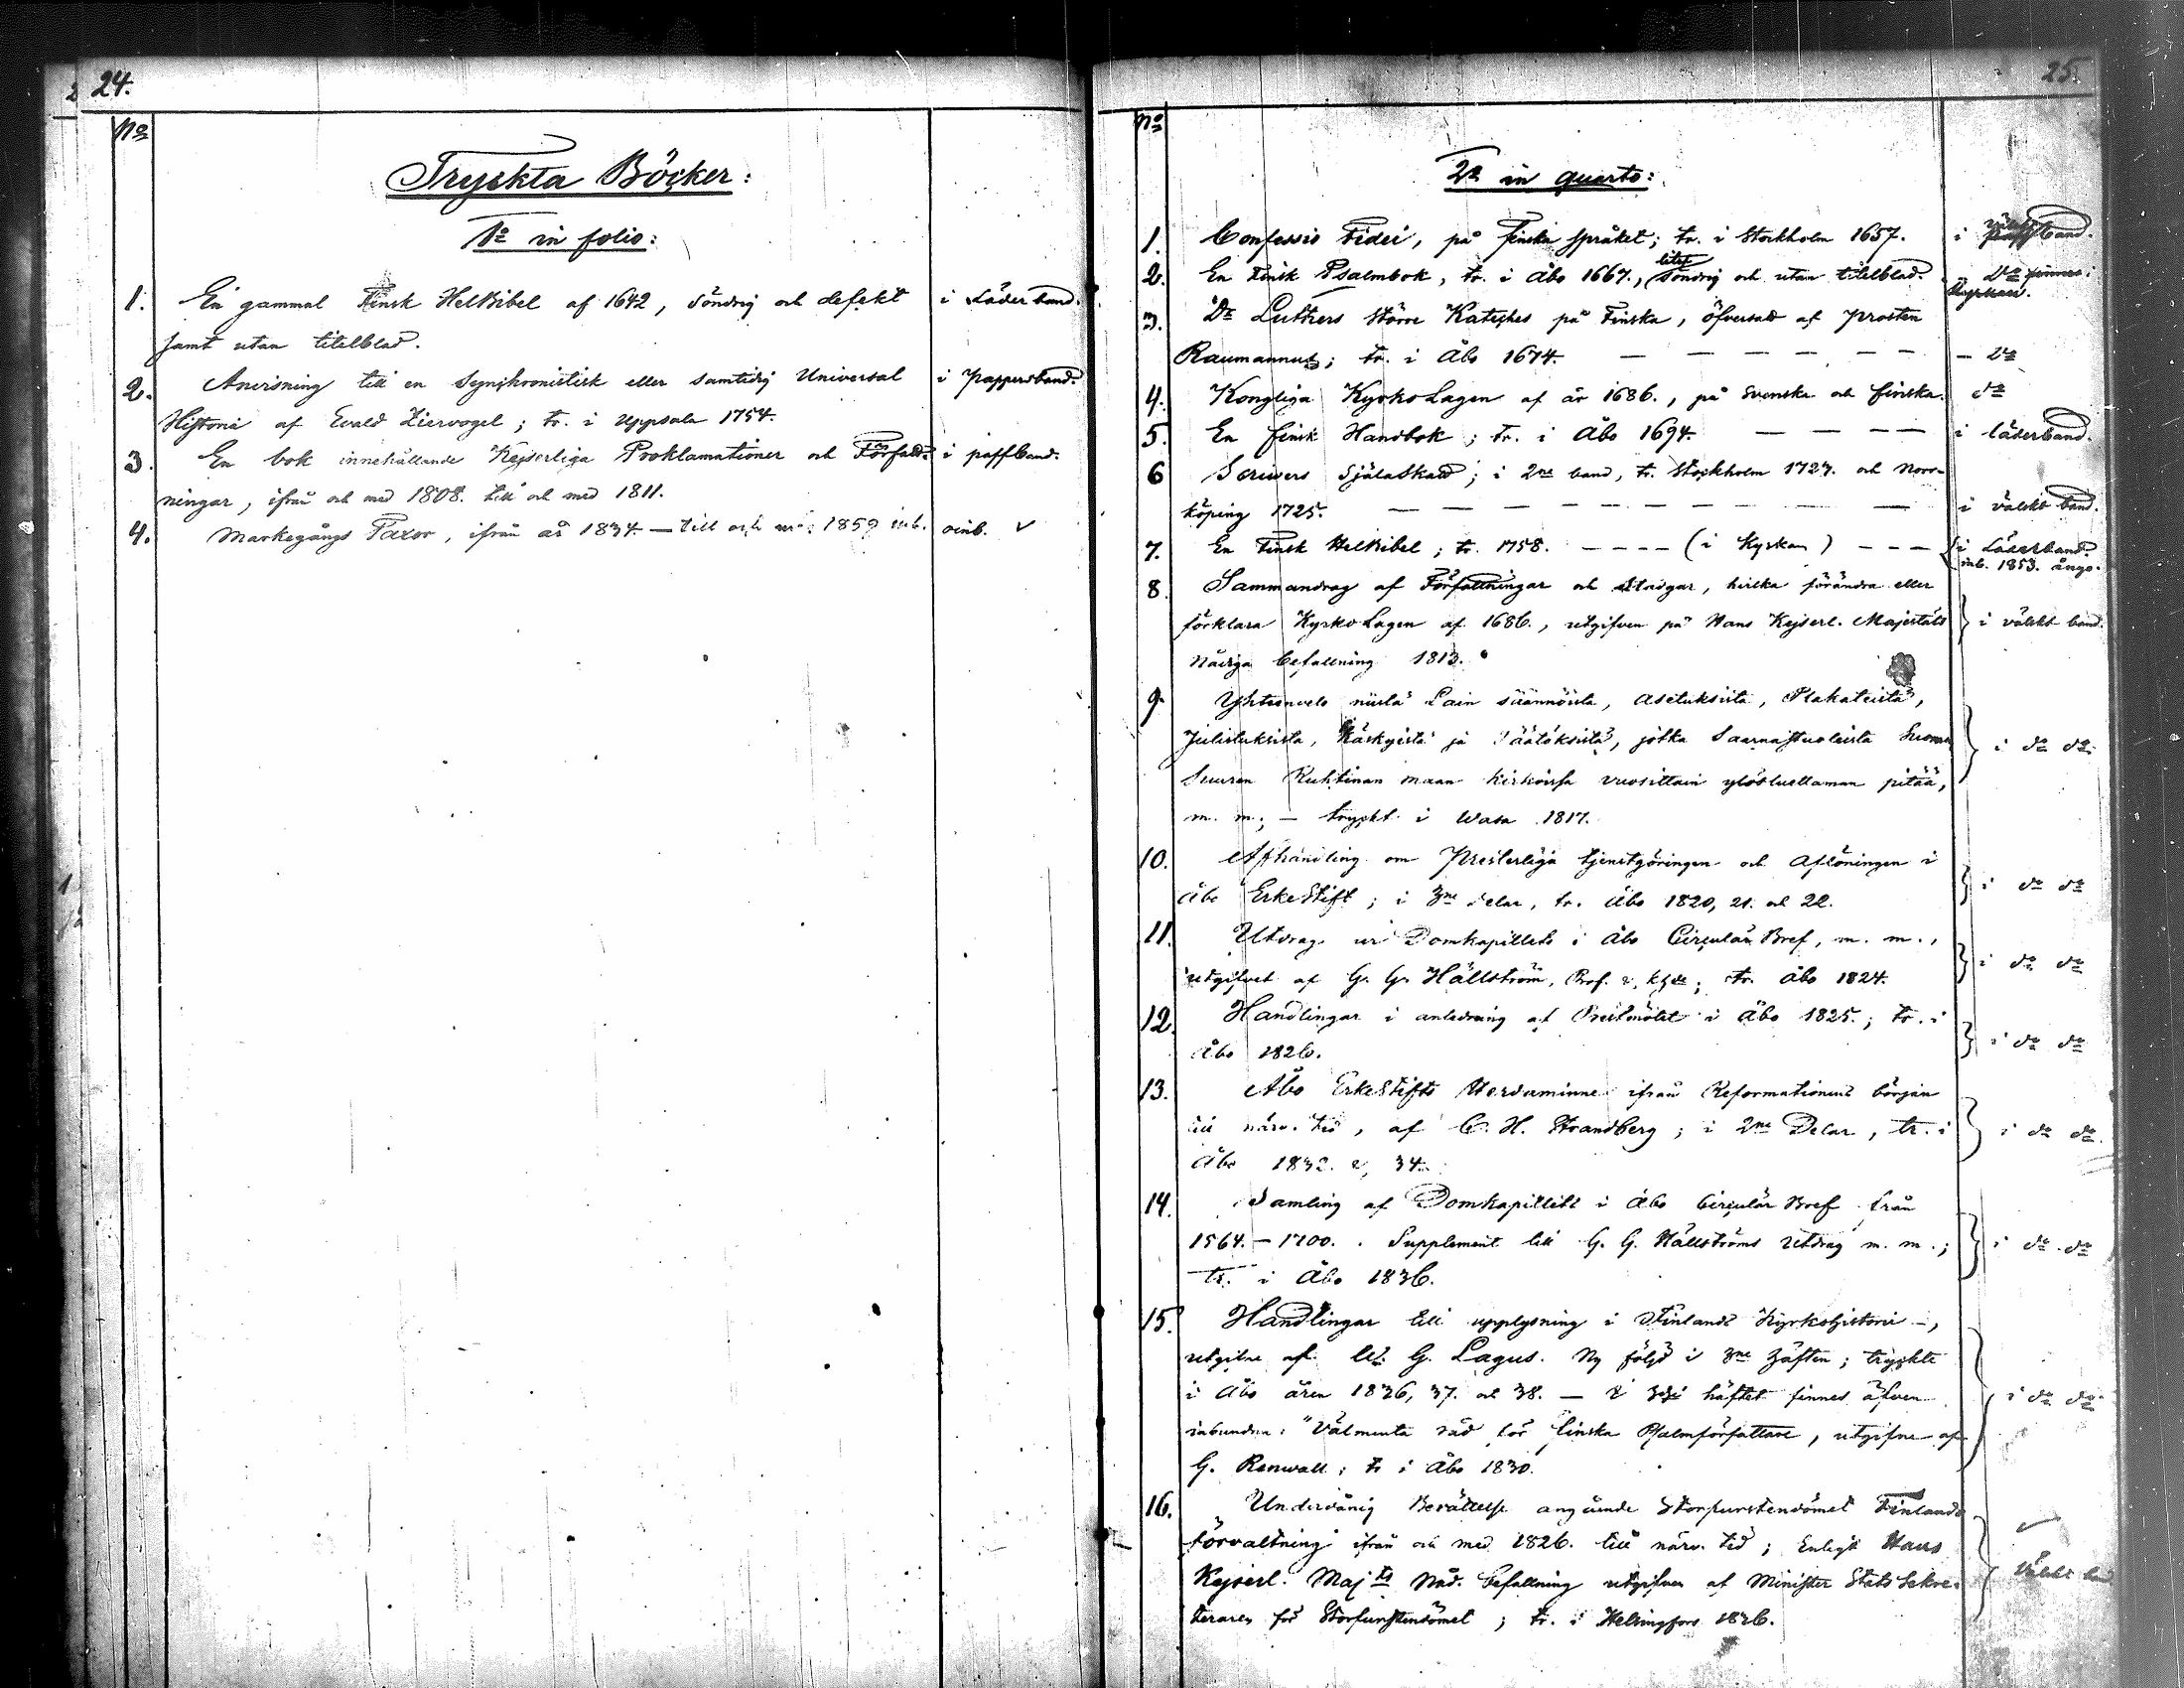 24.
No
Tryckta Böcker:
1o in folio:
1. En gammal Finsk HelBibel af 1642, söndrig och defekt i Läderband.
samt utan titelblad.
2. Anvisning till en Synchronistisk eller samtidig Universal i pappersband.
Historie af Evald Ziervogel; tr. i Uppsala 1754.
3. En bok innehållande Kejserliga Proklamationer och Författ- i paffband.
ningar, ifrån och med 1808. till och med 1811.
4. Markegångs Taxor, ifrån år 1834. — till och med 1859 inb. oinb. ✓
25.
No
2o in quarto:
1. Confessio Fidei, på finska språket; tr. i Stockholm 1657. i band.
2. En Finsk Psalmbok, tr. i Åbo 1667., litet söndrig och utan titelblad. do
3. Dr Luthers större Kateches på Finska, öfversatt af prosten
Raumannus; tr. i Åbo 1674. — — — — — — — do
4. Kongliga KyrkoLagen af år 1686., på Svenska och finska. do
5. En finsk Handbok; tr. i Åbo 1694. — — — — i läderband.
6 Scrivers Själaskatt; i 2ne band, tr. Stockholm 1727. och Norr-
köping 1725. — — — — — — — — — — i välskt band.
7. En Finsk HelBibel; tr. 1758. — — — — (i Kyrkan) — — — i Läderband.
inb. 1853. ånyo.
8. Sammandrag af Författningar och Stadgar, hvilka förändra eller
förklara KyrkoLagen af 1686., utgifven på Hans Kejserl. Majestäts i välskt band.
Nådiga befallning 1813.
9. Yhteenveto niistä Lain säännöistä, asetuksista, Plakateista,
Julistuksista, Käskyistä ja Päätöksistä, jotka Saarnastuoleista Suomen i do do
Suuren Ruhtinan maan kirkoissa vuosittain ylösluettaman pitää,
m. m.; — tryckt i Wasa 1817.
10. Afhandling om Presterliga tjenstgöringen och aflöningen i
Åbo ErkeStift; i 3ne delar, tr. Åbo 1820, 21. och 22. i do do
11. Utdrag ur Domkapitlets i Åbo Circulär Bref, m. m.,
utgifvet af G. G. Hällström, Prof. tr. Åbo 1824. i do do
12. Handlingar i anledning af Prestmötet i Åbo 1825.; tr. i
Åbo 1826. i do do
13. Åbo ErkeStifts Herdaminne ifrån Reformationens början
till närv. tid, af C. H. Strandberg; i 2ne Delar, tr. i i do do
Åbo 1832. & 34.
14. Samling af Domkapitlets i Åbo Circulär Bref från
1564. — 1700. Supplement till G. G. Hällströms Utdrag m. m.; i do do
tr. i Åbo 1836.
15. Handlingar till upplysning i Finlands Kyrkohistorie —,
utgifne af W. G. Lagus. Ny följd i 3ne häften; tryckte
i Åbo åren 1836, 37. och 38. — I häftet finnes äfven i do do
inbunden: "Välmenta råd för finska Psalmförfattare, utgifne af
G. Renwall; tr i Åbo 1830.
16. Underdånig Berättelse angående Storfurstendömet Finlands
förvaltning ifrån och med 1826. till närv. tid; Enligt Hans ✓
Kejserl. Maj:ts Nåd. befallning utgifven af Minister Stats Sekre- Välskt band
teraren för Storfurstendömet; tr. i Helsingfors 1836.